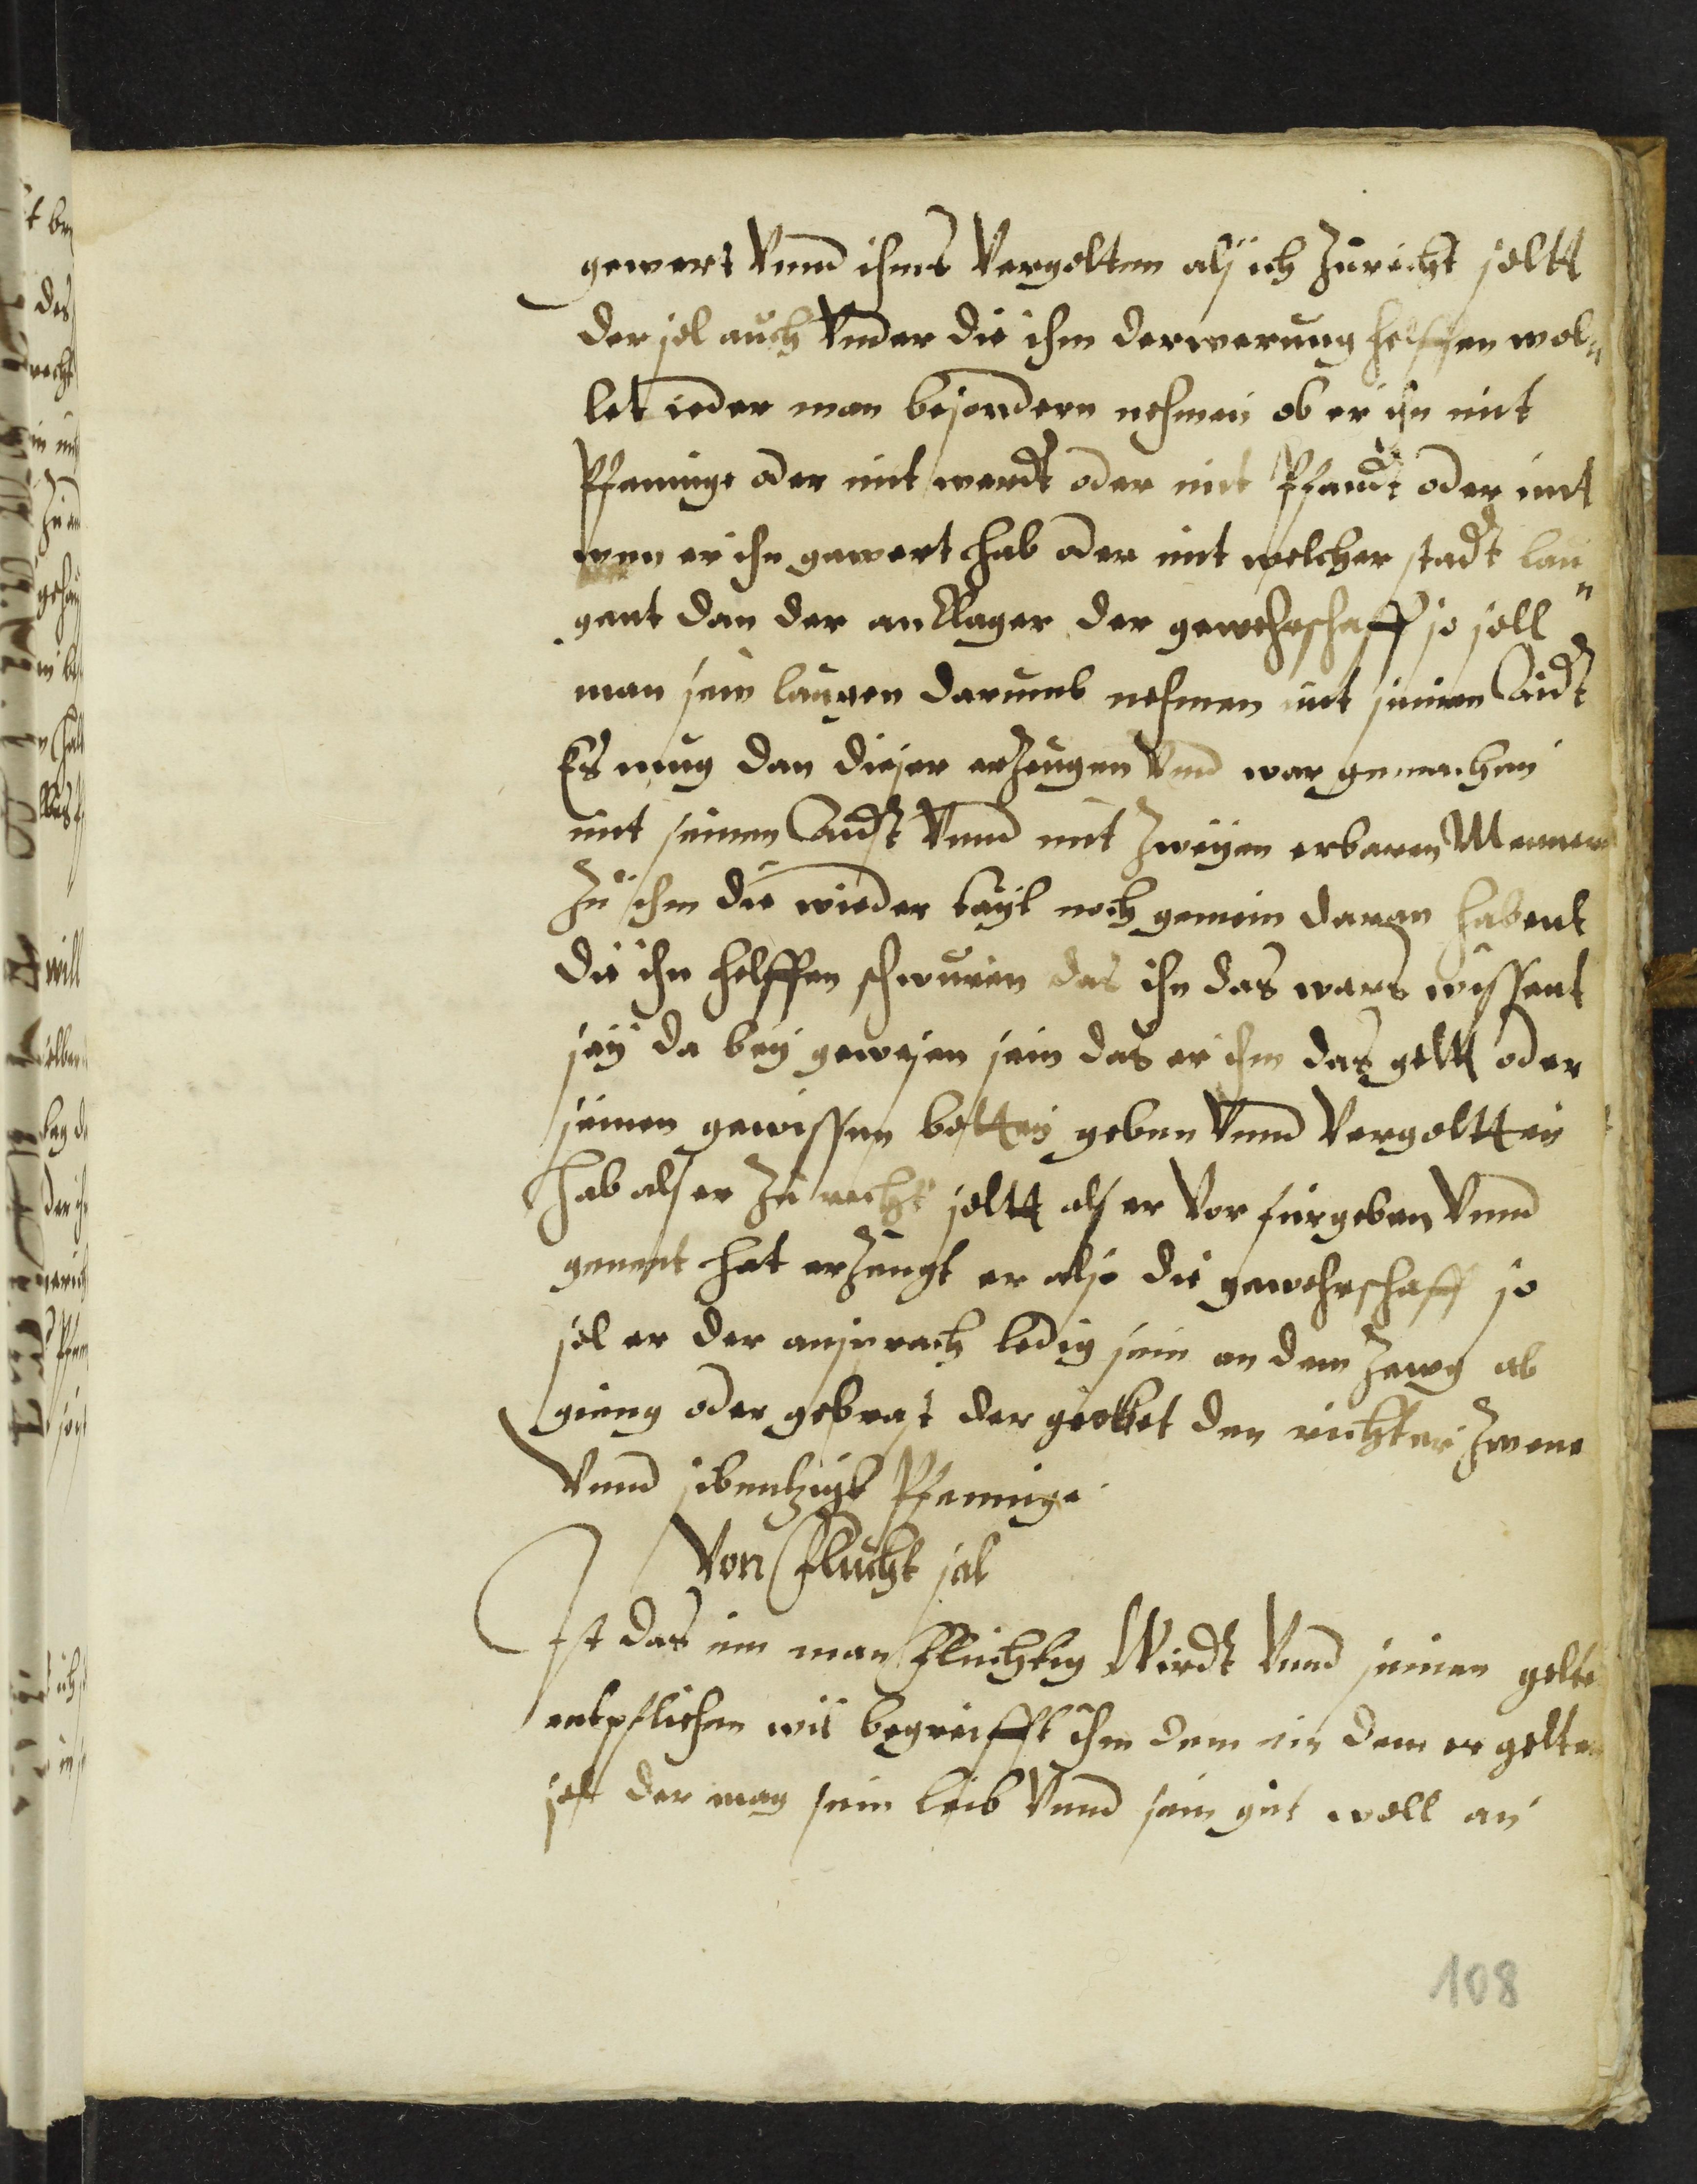 gewert Vnnd ihms Vergolten alß ich Zurecht soltt
der sol auch Vnder die ihm derwerung helffen wol„
let ieder man besondern nehmen ob er ihn mit
Pfeninge oder mit werdt oder mit Pfandt oder mit
wen er ihn gewert hab oder mit welcher stadt lau„
gent dan der an Klager der gewehrschafft so soll
man sein laugen darumb nehmen mit seinen Aidt
Es mug dan dieser erzeugen Vnd war gemachen
mit seinen Aidt Vnnd mit Zweyen erbaren Mennern
Zu ihm die wieder tayl noch gemein daran habent
die ihn helffen schwuren das ihn das wars wissent
sey da bey gewesen sein das er ihm das geltt oder
seinen gewissen botten geben Vnnd Vergoltten
hab alß er Zu recht soltt alß er Vor furgeben Vnnd
genent hat erzeugt er also die gewehrschafft so
sol er der ansprach ledig sein an dem Zewg ab
gieng oder gebrast der giebet den richter Zwene
Vnnd sibentzigk Pfeninge
Von Flucht sal
Ist das ein man Fluchtig Wirdt Vnnd seinen gelte
entpfliehen wil begreifft ihm dem ein dem er gelten
sol der mag sein leib Vnnd sein gut woll an
108